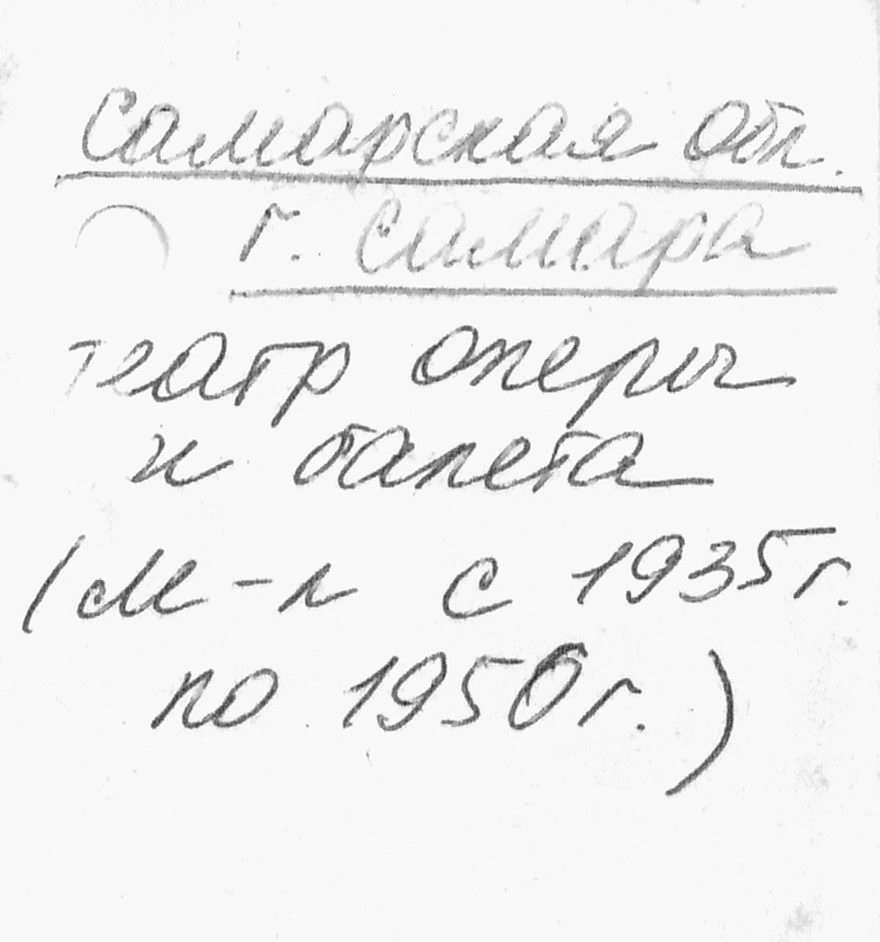 Самарская обл.
г. Самара
театр оперы
и балета
(м-л с 1935г.
по 1950г.)